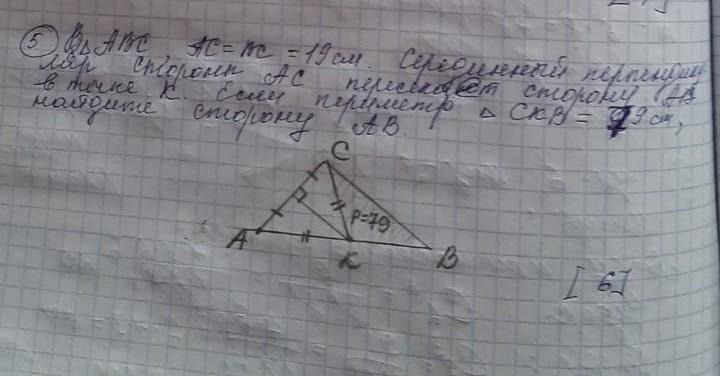 5 В △ ABC AC = BC = 19 см. Серединный перпендику
ляр стороны AC пересекает сторону AB
в точке K. Если периметр △ CKB = 79 см,
найдите сторону AB.
C
P=79
A
K
B
[ 6 ]